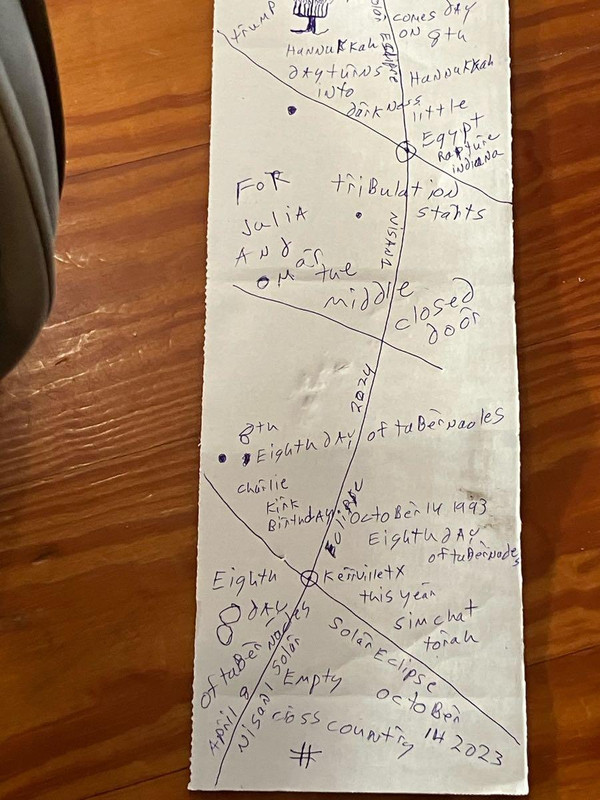 trump
Solar Eclipse
COMES DAY
ON 8th
HANNUKKah
DAY turns
INto
DarkNess
HANNUKKah
little
Egypt
Rapture
INDIANA
FOR
JuliA
AND
tribulation
starts
NISAN 1
the
Middle
closed
door
2024
8th
Eighth DAY of taBerNacles
charlie
Kirk
BirthDAY
OctoBer 14 1993
Eighth DAY
of taBerNacles
Eclipse
Eighth
8 DAY
of taBerNacles
KerrvilletX
this year
simchat
torah
Solar Eclipse
OctoBer
14 2023
April 8
NISAN 1 Solar
Empty
cross country
#